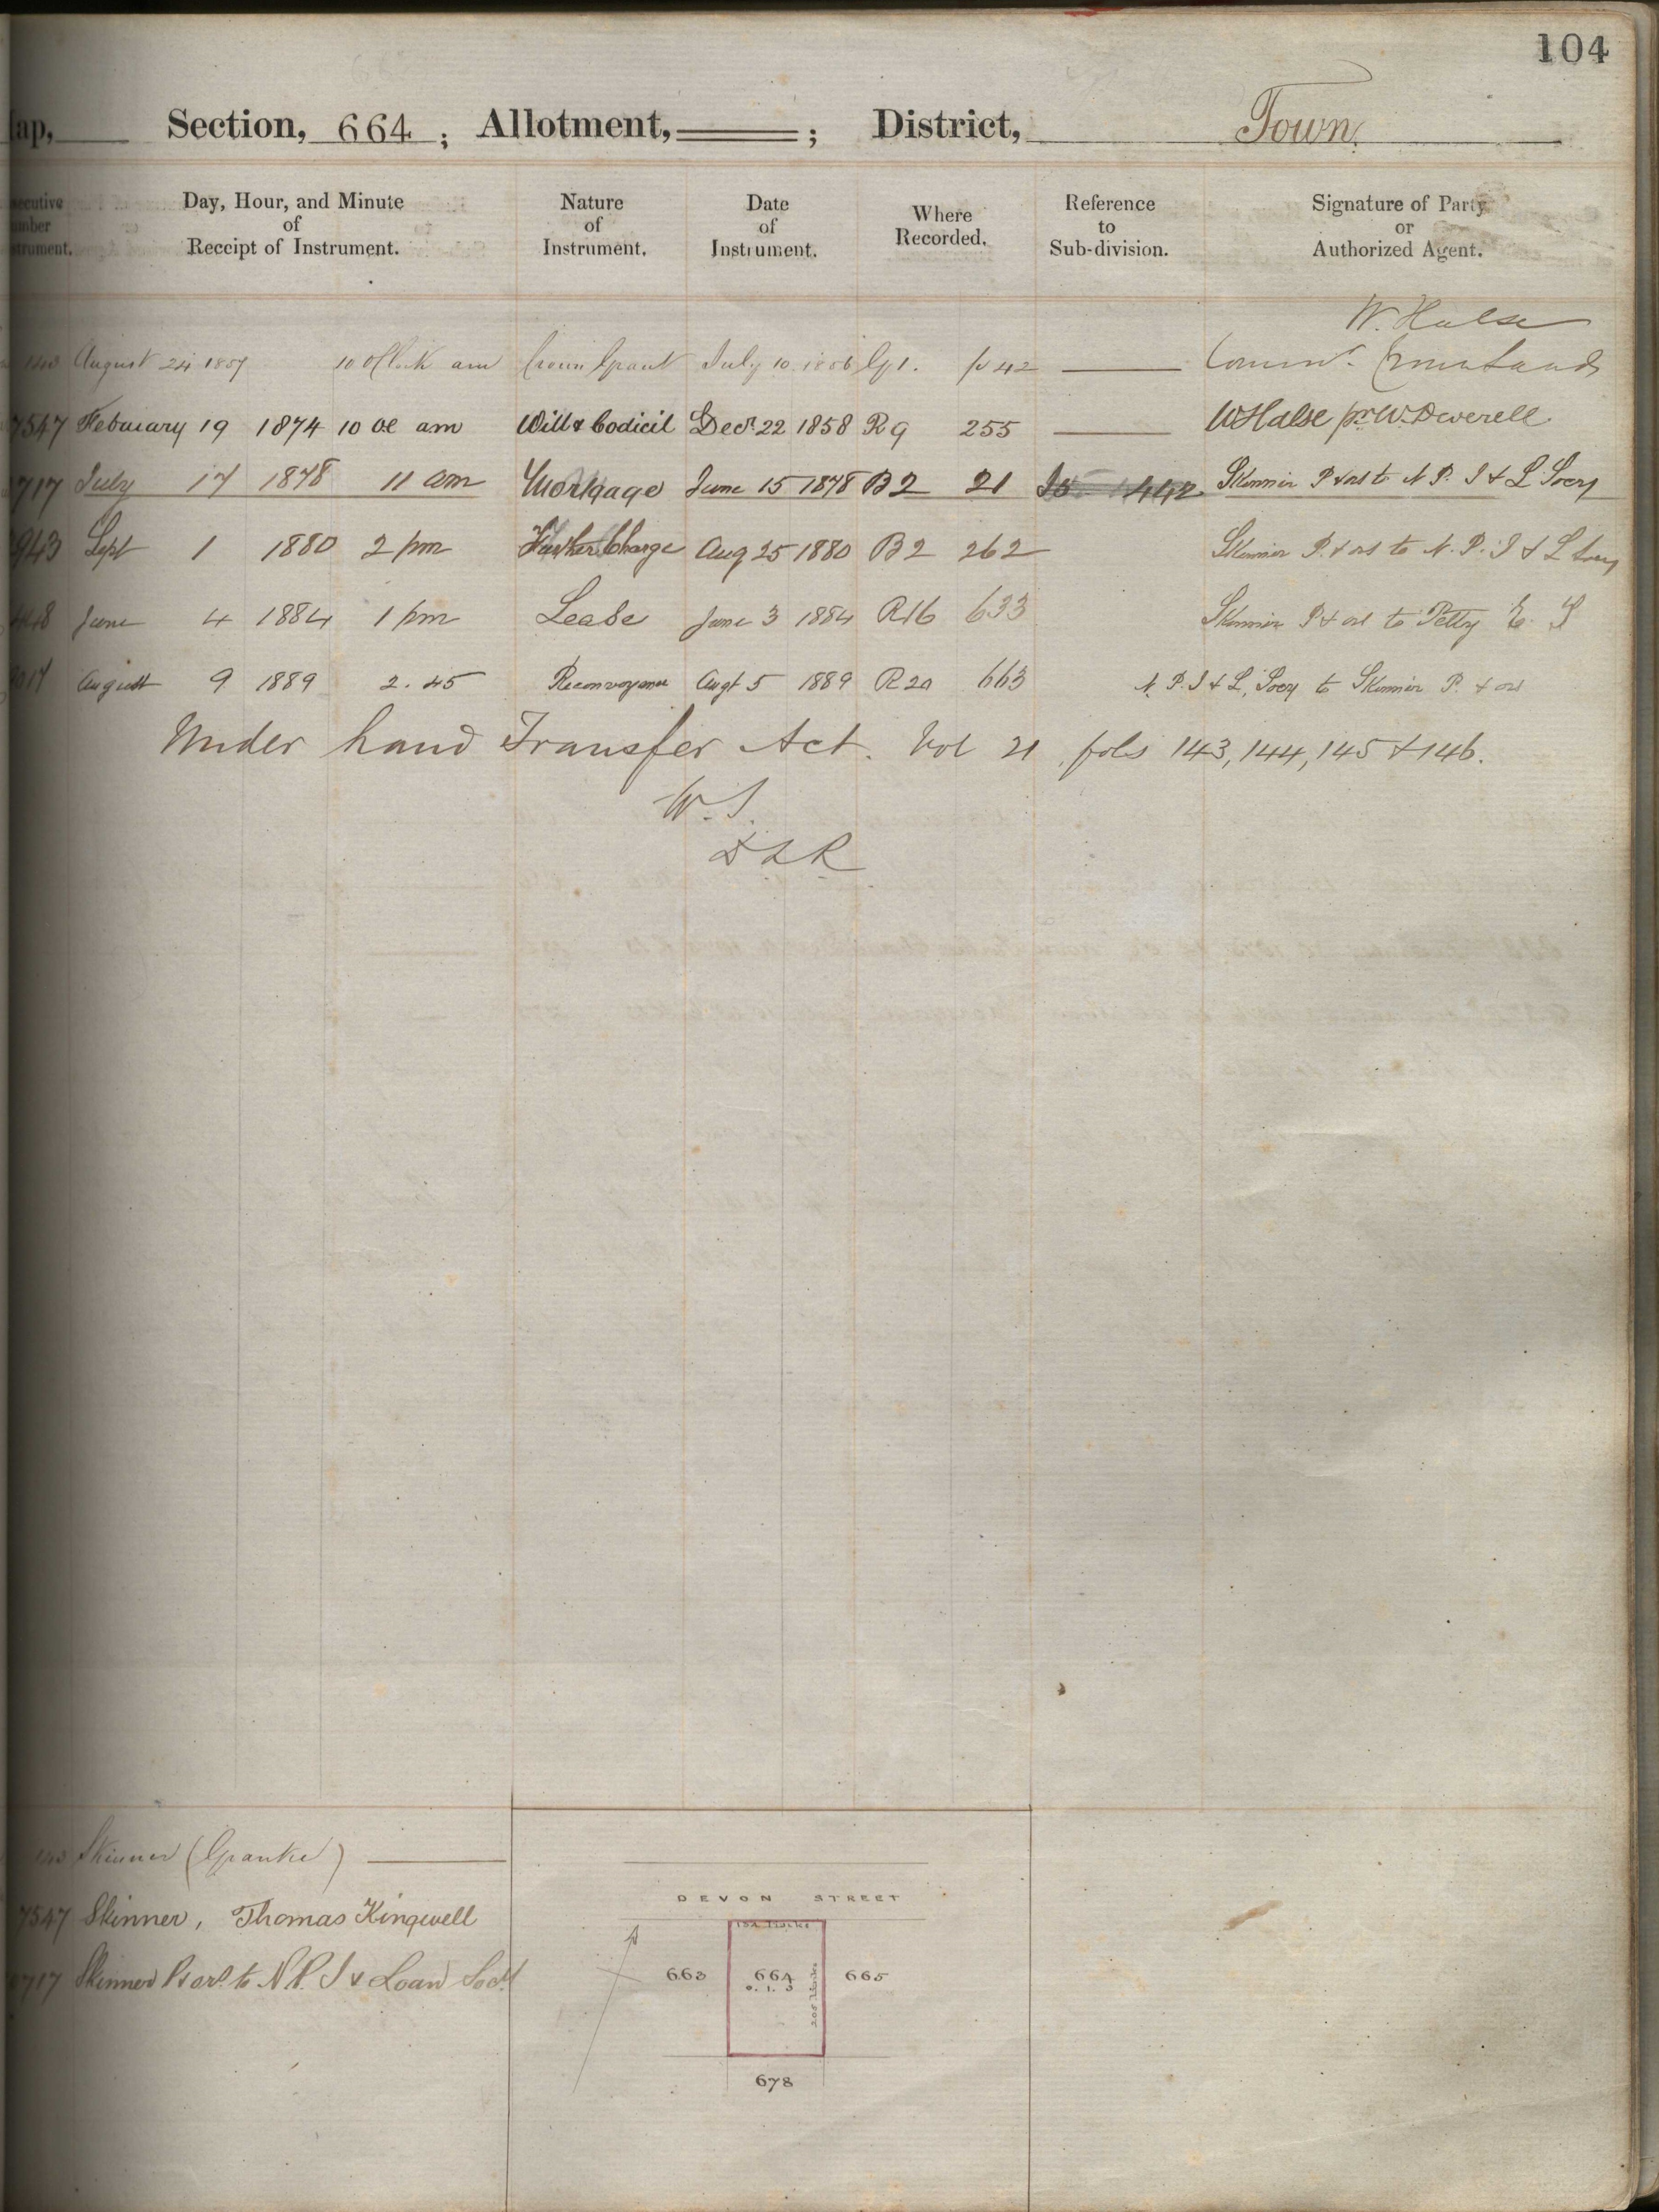 104
ap, Section, 664 ; Allotment, ; District, Town.
ecutive
mber
strument.
Day, Hour, and Minute
of
Receipt of Instrument.
Nature
of
Instrument.
Date
of
Instrument.
Where
Recorded.
Reference
to
Sub-division.
Signature of Party
or
Authorized Agent.
W. Halse
August 24 1857 10 O'Clock am Crown Grant July 10 1856 Gp1. p 42 Commr. Crown Lands
7547 February 19 1874 10 oc am Will & Codicil Decr. 22 1858 R9 255 W Halse pr W. Deverell
717 July 17 1878 11 am Mortgage June 15 1878 B2 21 442 Skinner P & ors to N P. I & L Socy
943 Sept 1 1880 2 pm Further Charge Aug 25 1880 B2 262 Skinner P. & ors to N. P. I & L Socy
June 4 1884 1 pm Lease June 3 1884 R16 633 Skinner P & ors to Petty E. S
017 August 9 1889 2.45 Reconveyance Augt 5 1889 R20 663 N. P. I & L, Socy to Skinner P. & ors
Under Land Transfer Act. Vol 21 fols 143, 144, 145 & 146.
W. S.
D L R
Skinner (Grantee)
7547 Skinner, Thomas Kingwell
717 Skinner P & ors. to N. P. I & Loan Socy
DEVON STREET
152 links
663 664 665
0. 1. 3
205 links
678